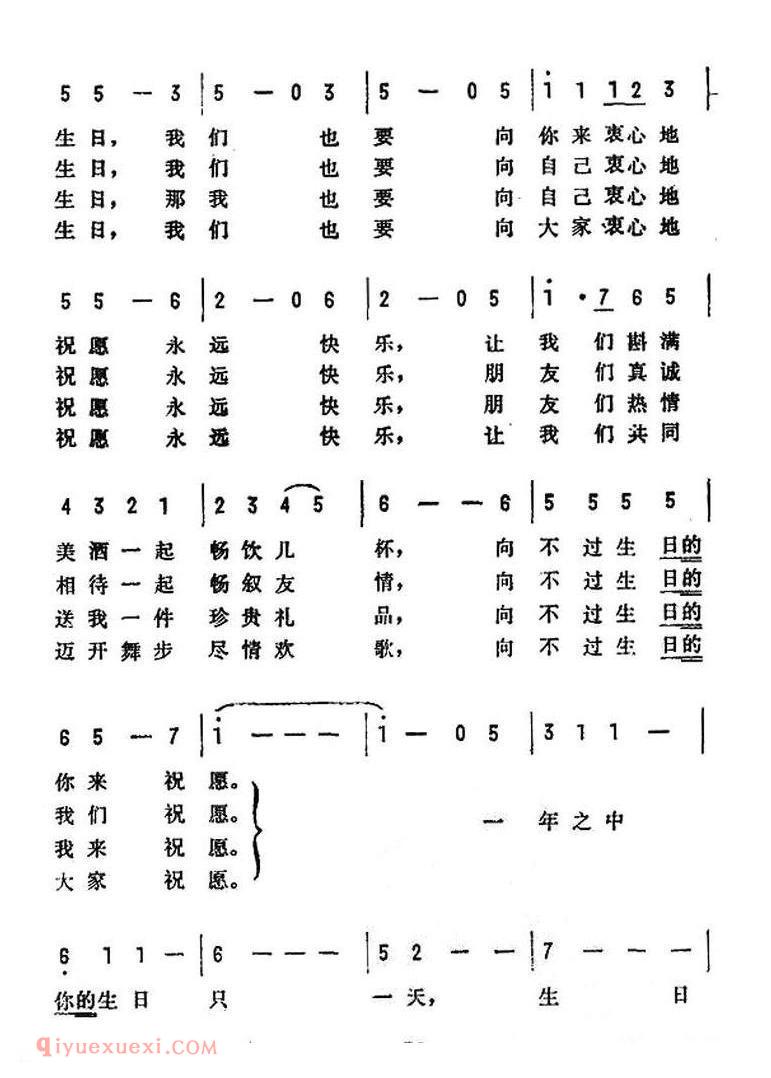 5 5 — 3 | 5 — 0 3 | 5 — 0 5 | i 1 1 2 3 |
生日， 我们 也要 向你来衷心地
生日， 我们 也要 向自己衷心地
生日， 那我 也要 向自己衷心地
生日， 我们 也要 向大家衷心地
5 5 — 6 | 2 — 0 6 | 2 — 0 5 | i · 7 6 5 |
祝愿 永远 快乐， 让我们斟满
祝愿 永远 快乐， 朋友们真诚
祝愿 永远 快乐， 朋友们热情
祝愿 永远 快乐， 让我们共同
4 3 2 1 | 2 3 4 5 | 6 — — 6 | 5 5 5 5 |
美酒一起 畅饮几 杯， 向不过生日的
相待一起 畅叙友 情， 向不过生日的
送我一件 珍贵礼 品， 向不过生日的
迈开舞步 尽情欢 歌， 向不过生日的
6 5 — 7 | i — — — | i — 0 5 | 3 1 1 — |
你来 祝愿。
我们 祝愿。
一 年之中
我来 祝愿。
大家 祝愿。
6 1 1 — | 6 — — — | 5 2 — — | 7 — — — |
你的生日 只 一天， 生 日
qiyuexuexi.com